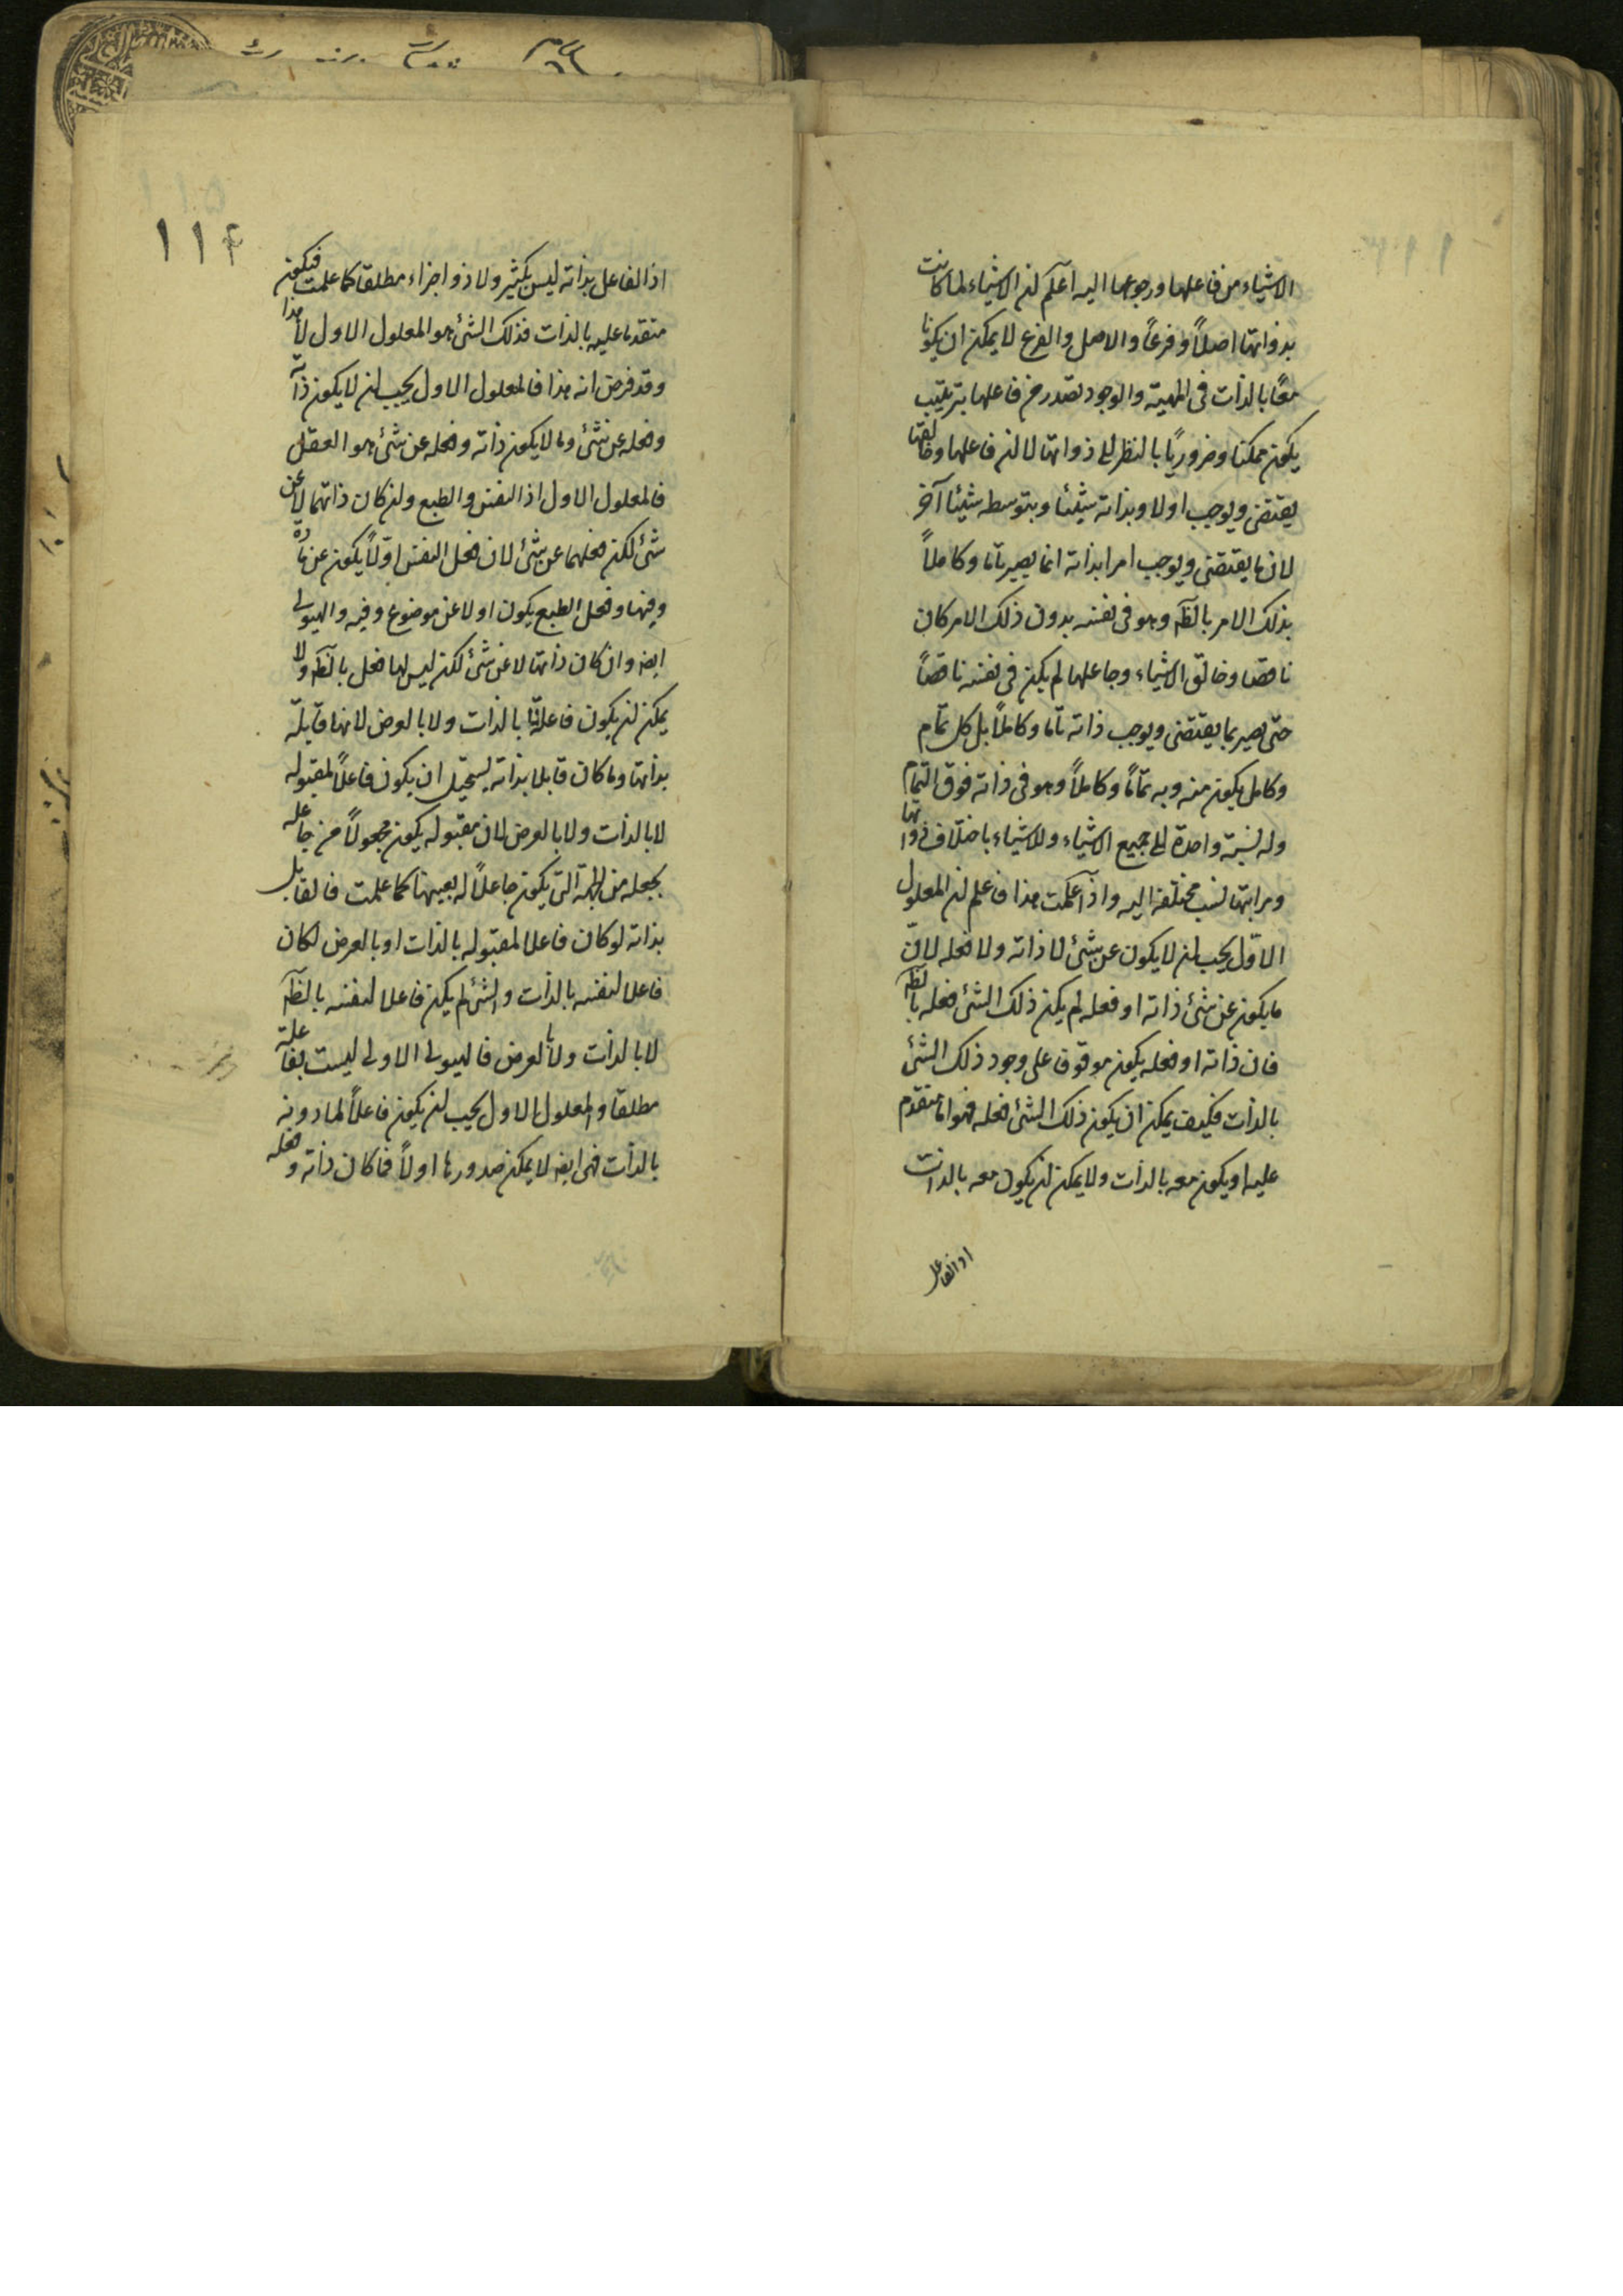 الاشياء من فاعلها ورجوعها اليه اعلم ان الاشياء لما كانت
بذواتها اصلاً وفرعاً والاصل والفرع لا يمكن ان يكونا
معًا بالذات فى المهية والوجود تصدر من فاعلها بترتيب
يكون ممكنا وضروريًا بالنظر الى ذواتها لا لان فاعلها وخالقها
يقتضى ويوجب اولا وبذاته شيئا وبتوسطه شيئا آخر
لان ما يقتضى ويوجب امرا بذاته انما يصير تاما وكاملاً
بذلك الامر بالظه وهو فى نفسه بدون ذلك الامر كان
ناقصا وخالق الاشياء وجاعلها لم يكن فى نفسه ناقصاً
حتى يصير بما يقتضى ويوجب ذاته تاما وكاملاً بل كل تمام
وكامل يكون منه وبه تمّاماً وكاملاً وهو فى ذاته فوق التمام
وله نسبة واحدة الى جميع الاشياء وللاشياء باختلاف ذواتها
ومراتبها نسب مختلفة اليه واذا علمت هذا فاعلم ان المعلول
الاوّل يجب ان لا يكون عن شئ لا ذاته ولا فعله لانّ
ما يكون عن شئ ذاته او فعله لم يكن ذلك الشئ فعله بالظه
فان ذاته او فعله يكون موقوفا على وجود ذلك الشئ
بالذات فكيف يمكن ان يكون ذلك الشئ فعله فهو اما متقدم
عليه او يكون معه بالذات ولا يمكن ان يكون معه بالذات
اذ الفاعل
١١٤
اذ الفاعل بذاته ليس بكثير ولا ذو اجزاء مطلقا كما علمت فيكون
متقدما عليه بالذات فذلك الشئ هو المعلول الاول لا هذا
وقد فرض انه هذا فالمعلول الاول يجب ان لا يكون ذاته
وفعله عن شئ وما لا يكون ذاته وفعله عن شئ هو العقل
فالمعلول الاول اذ النفس والطبع وان كان ذاتهما لا عن
شئ لكن فعلهما عن شئ لان فعل النفس اوّلاً يكون عن مادة
وفيها وفعل الطبع يكون اولا عن موضوع وفيه والهيولى
ايضه وان كان ذاتها لا عن شئ لكن ليس لها فعل بالظه ولا
يمكن ان يكون فاعلا بالذات ولا بالعرض لانها قابلة
بذاتها وما كان قابلا بذاته يستحيل ان يكون فاعلاً لمقبوله
لا بالذات ولا بالعرض لان مقبوله يكون مجعولاً من جاعله
بجعله من الجهة التى يكون جاعلاً له بعينها كما علمت فالقابل
بذاته لو كان فاعلا لمقبوله بالذات او بالعرض لكان
فاعلا لنفسه بالذات والشئ لم يكن فاعلا لنفسه بالظه
لا بالذات ولا بالعرض فالهيولى الاولى ليست بفاعلة
مطلقا والمعلول الاول يجب ان يكون فاعلاً لما دونه
بالذات فهى ايضه لا يمكن صدورها اولاً فما كان ذاته وفعله